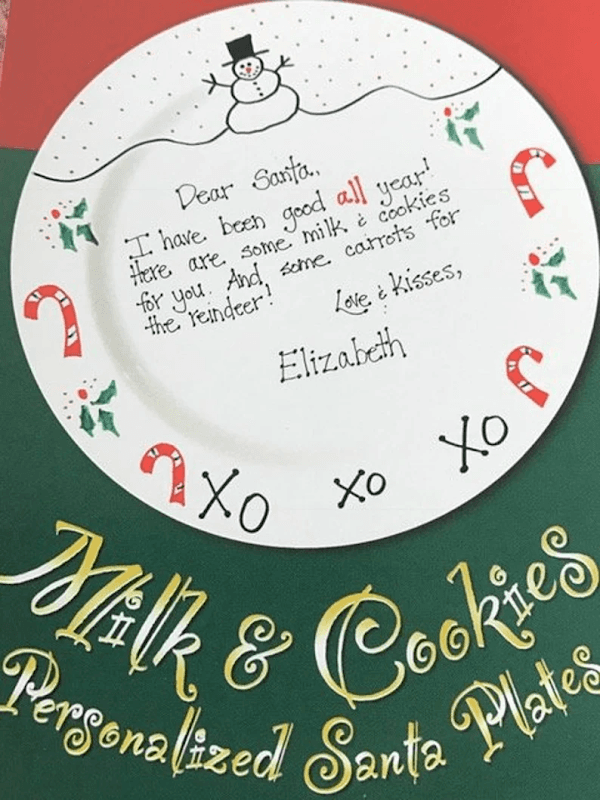 Dear Santa,
I have been good all year!
Here are some milk & cookies
for you. And some carrots for
the reindeer!
Love & kisses,
Elizabeth
XO XO XO
Milk & Cookies
Personalized Santa Plates